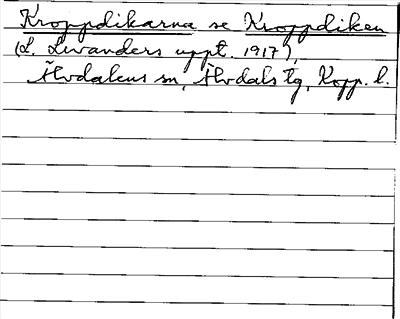 Kroppdikarna se Kroppdiken
(L. Levanders uppt. 1917),
Älvdalens sn, Älvdals tg, Kopp. l.